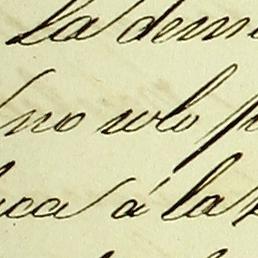 La dem
no solo p
ica á la